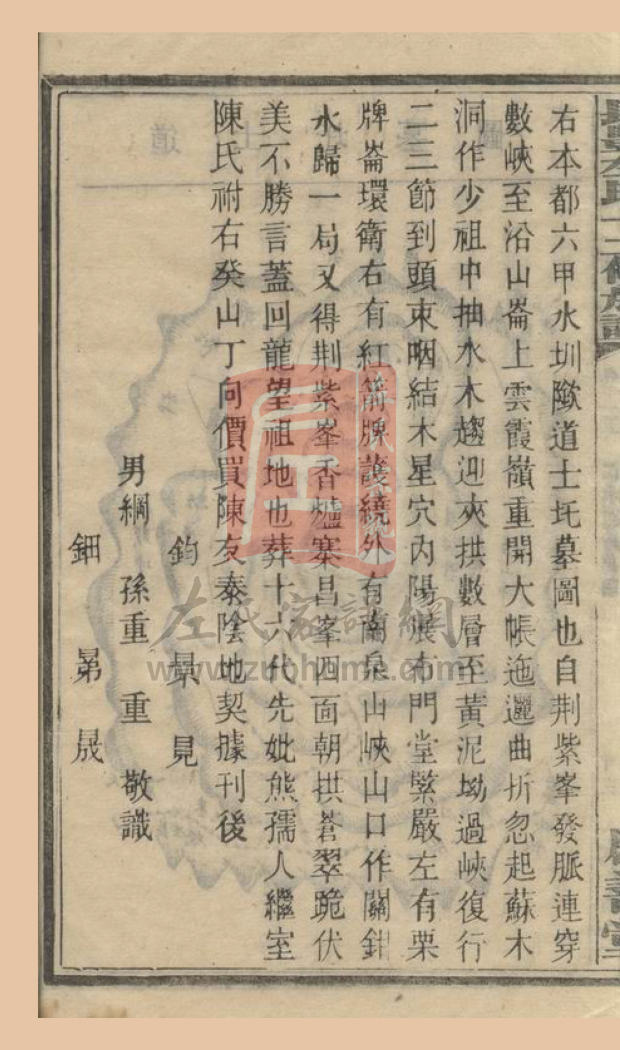 右本都六甲水圳隊道士圫墓圖也自荆紫峯發脈連穿
數峽至沿山崙上雲霞嶺重開大帳迤邐曲折忽起蘇木
洞作少祖中抽水木趨迎夾拱數層至黃泥坳過峽復行
二三節到頭束咽結木星穴內陽展布門堂緊嚴左有栗
牌崙環衛右有紅箭牌護繞外有蘭泉山峽山口作關鉗
水歸一局又得荆紫峯香爐寨昌峯四面朝拱蒼翠跪伏
美不勝言蓋回龍望祖地也葬十六代先妣熊孺人繼室
陳氏祔右癸山丁向價買陳友泰陰地契據刊後
鈞 㬌 見
男綱 孫重 重 敬識
鈿 晜 晟
左氏家譜網
www.zuohome.com